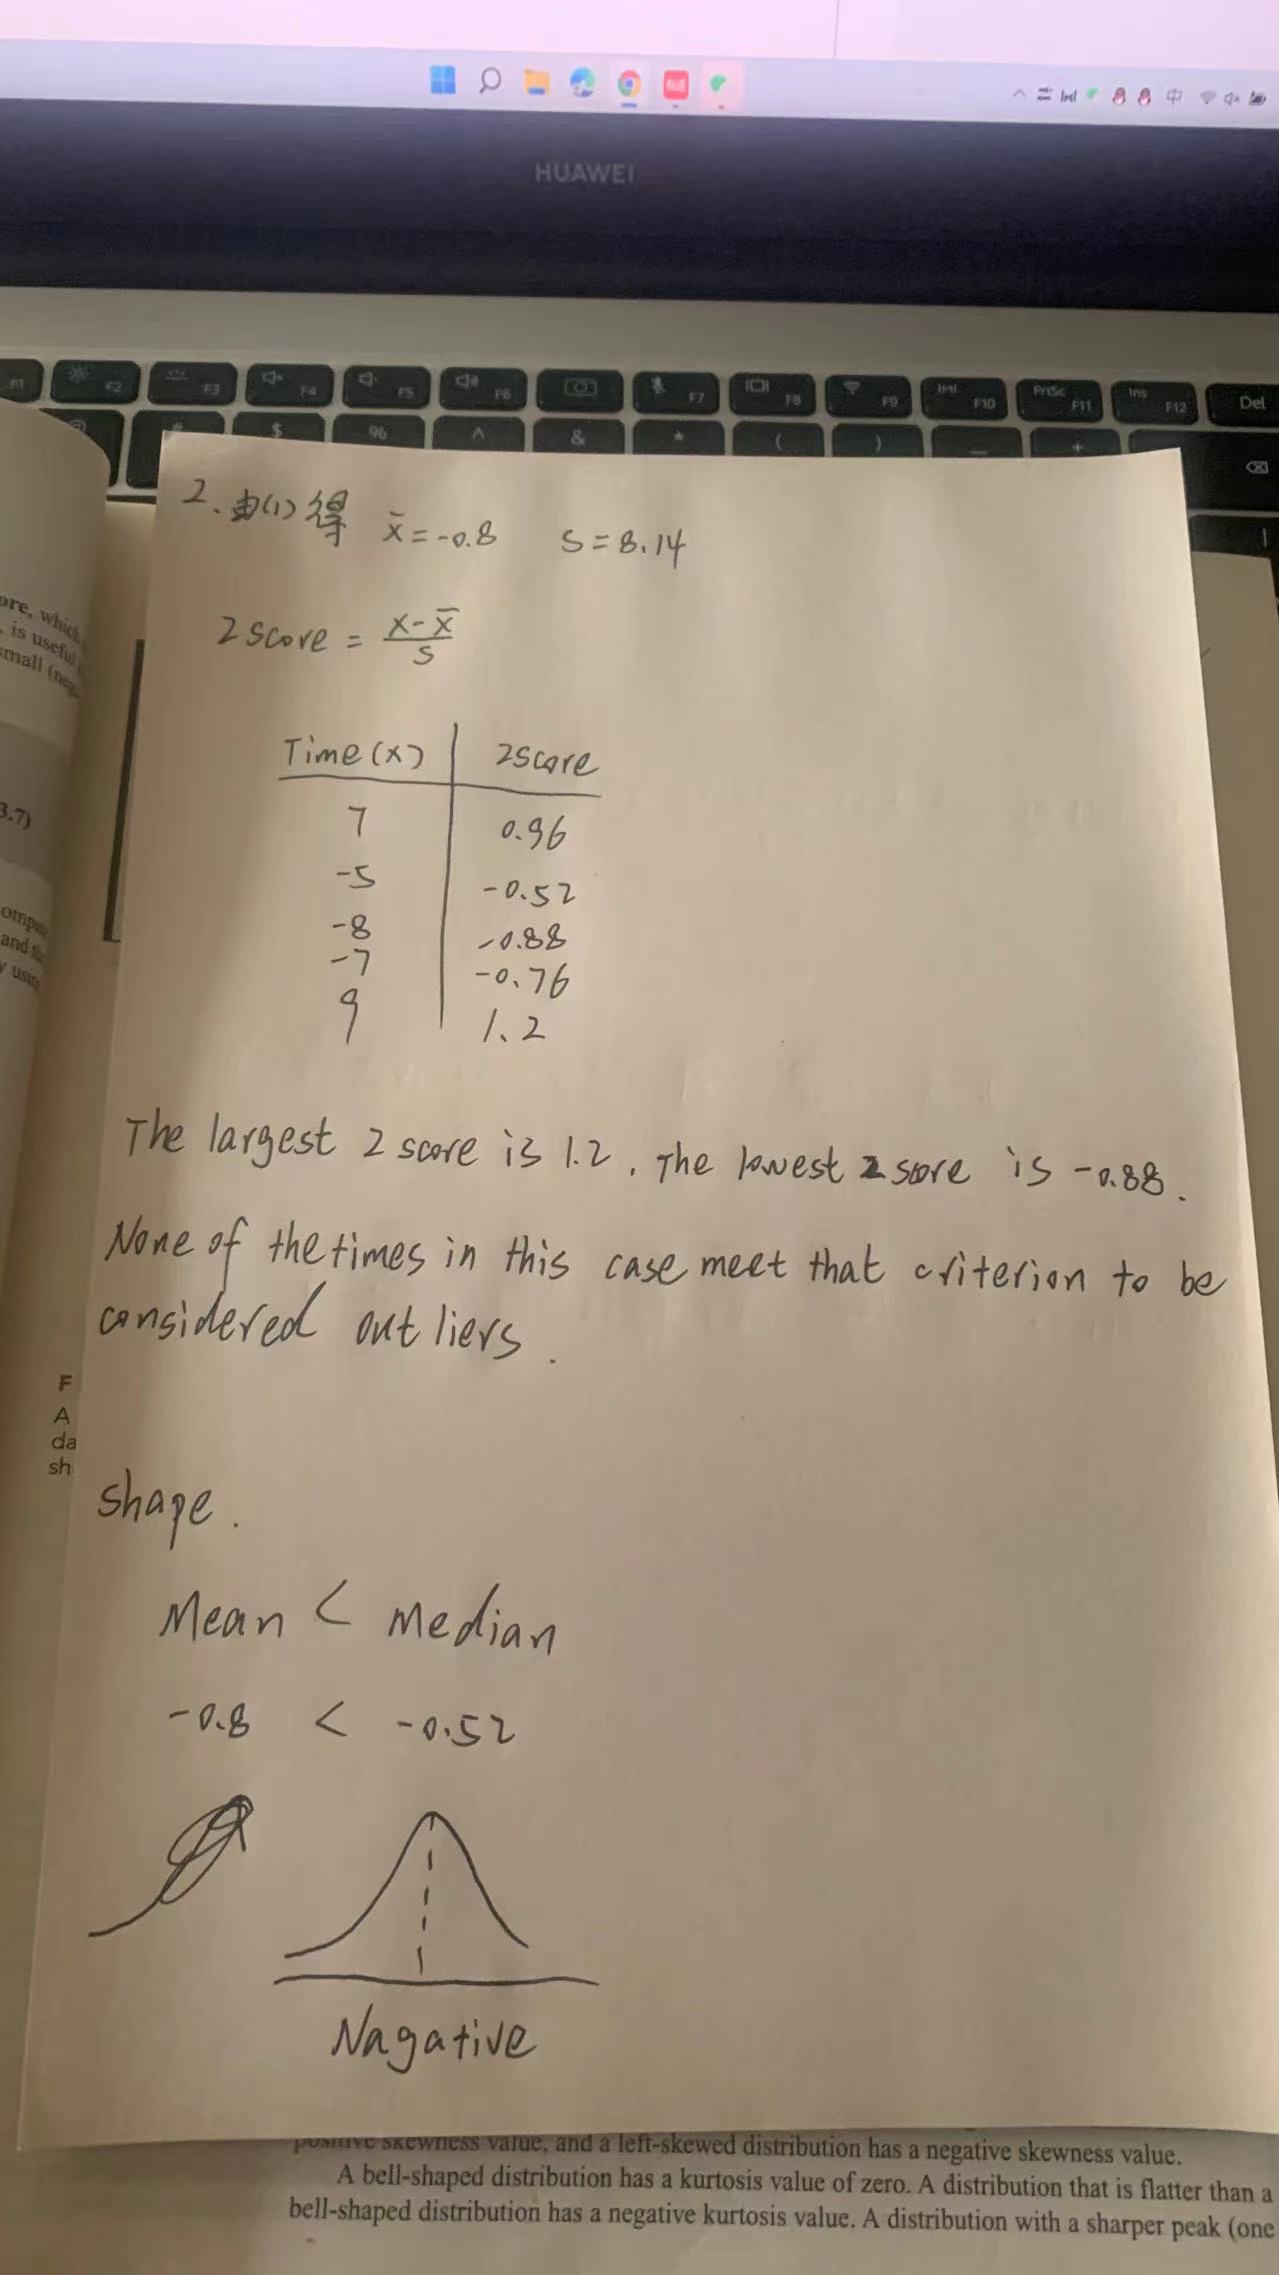 HUAWEI
F1 F2 F3 F4 F5 F6 F7 F8 F9 PrtSc F10 F11 Ins F12 Del
# $ % ^ & * ( ) _ +
中
2. 由(1)得 x̄ = -0.8 S = 8.14
Z score = (x - x̄)/S
Time (x) Z score
7 0.96
-5 -0.52
-8 -0.88
-7 -0.76
9 1.2
The largest Z score is 1.2. The lowest Z score is -0.88.
None of the times in this case meet that criterion to be
considered outliers.
shape.
Mean < Median
-0.8 < -0.52
Nagative
ore, which
is useful
small (neg
3.7)
and
F
A
da
sh
positive skewness value, and a left-skewed distribution has a negative skewness value.
A bell-shaped distribution has a kurtosis value of zero. A distribution that is flatter than a
bell-shaped distribution has a negative kurtosis value. A distribution with a sharper peak (one